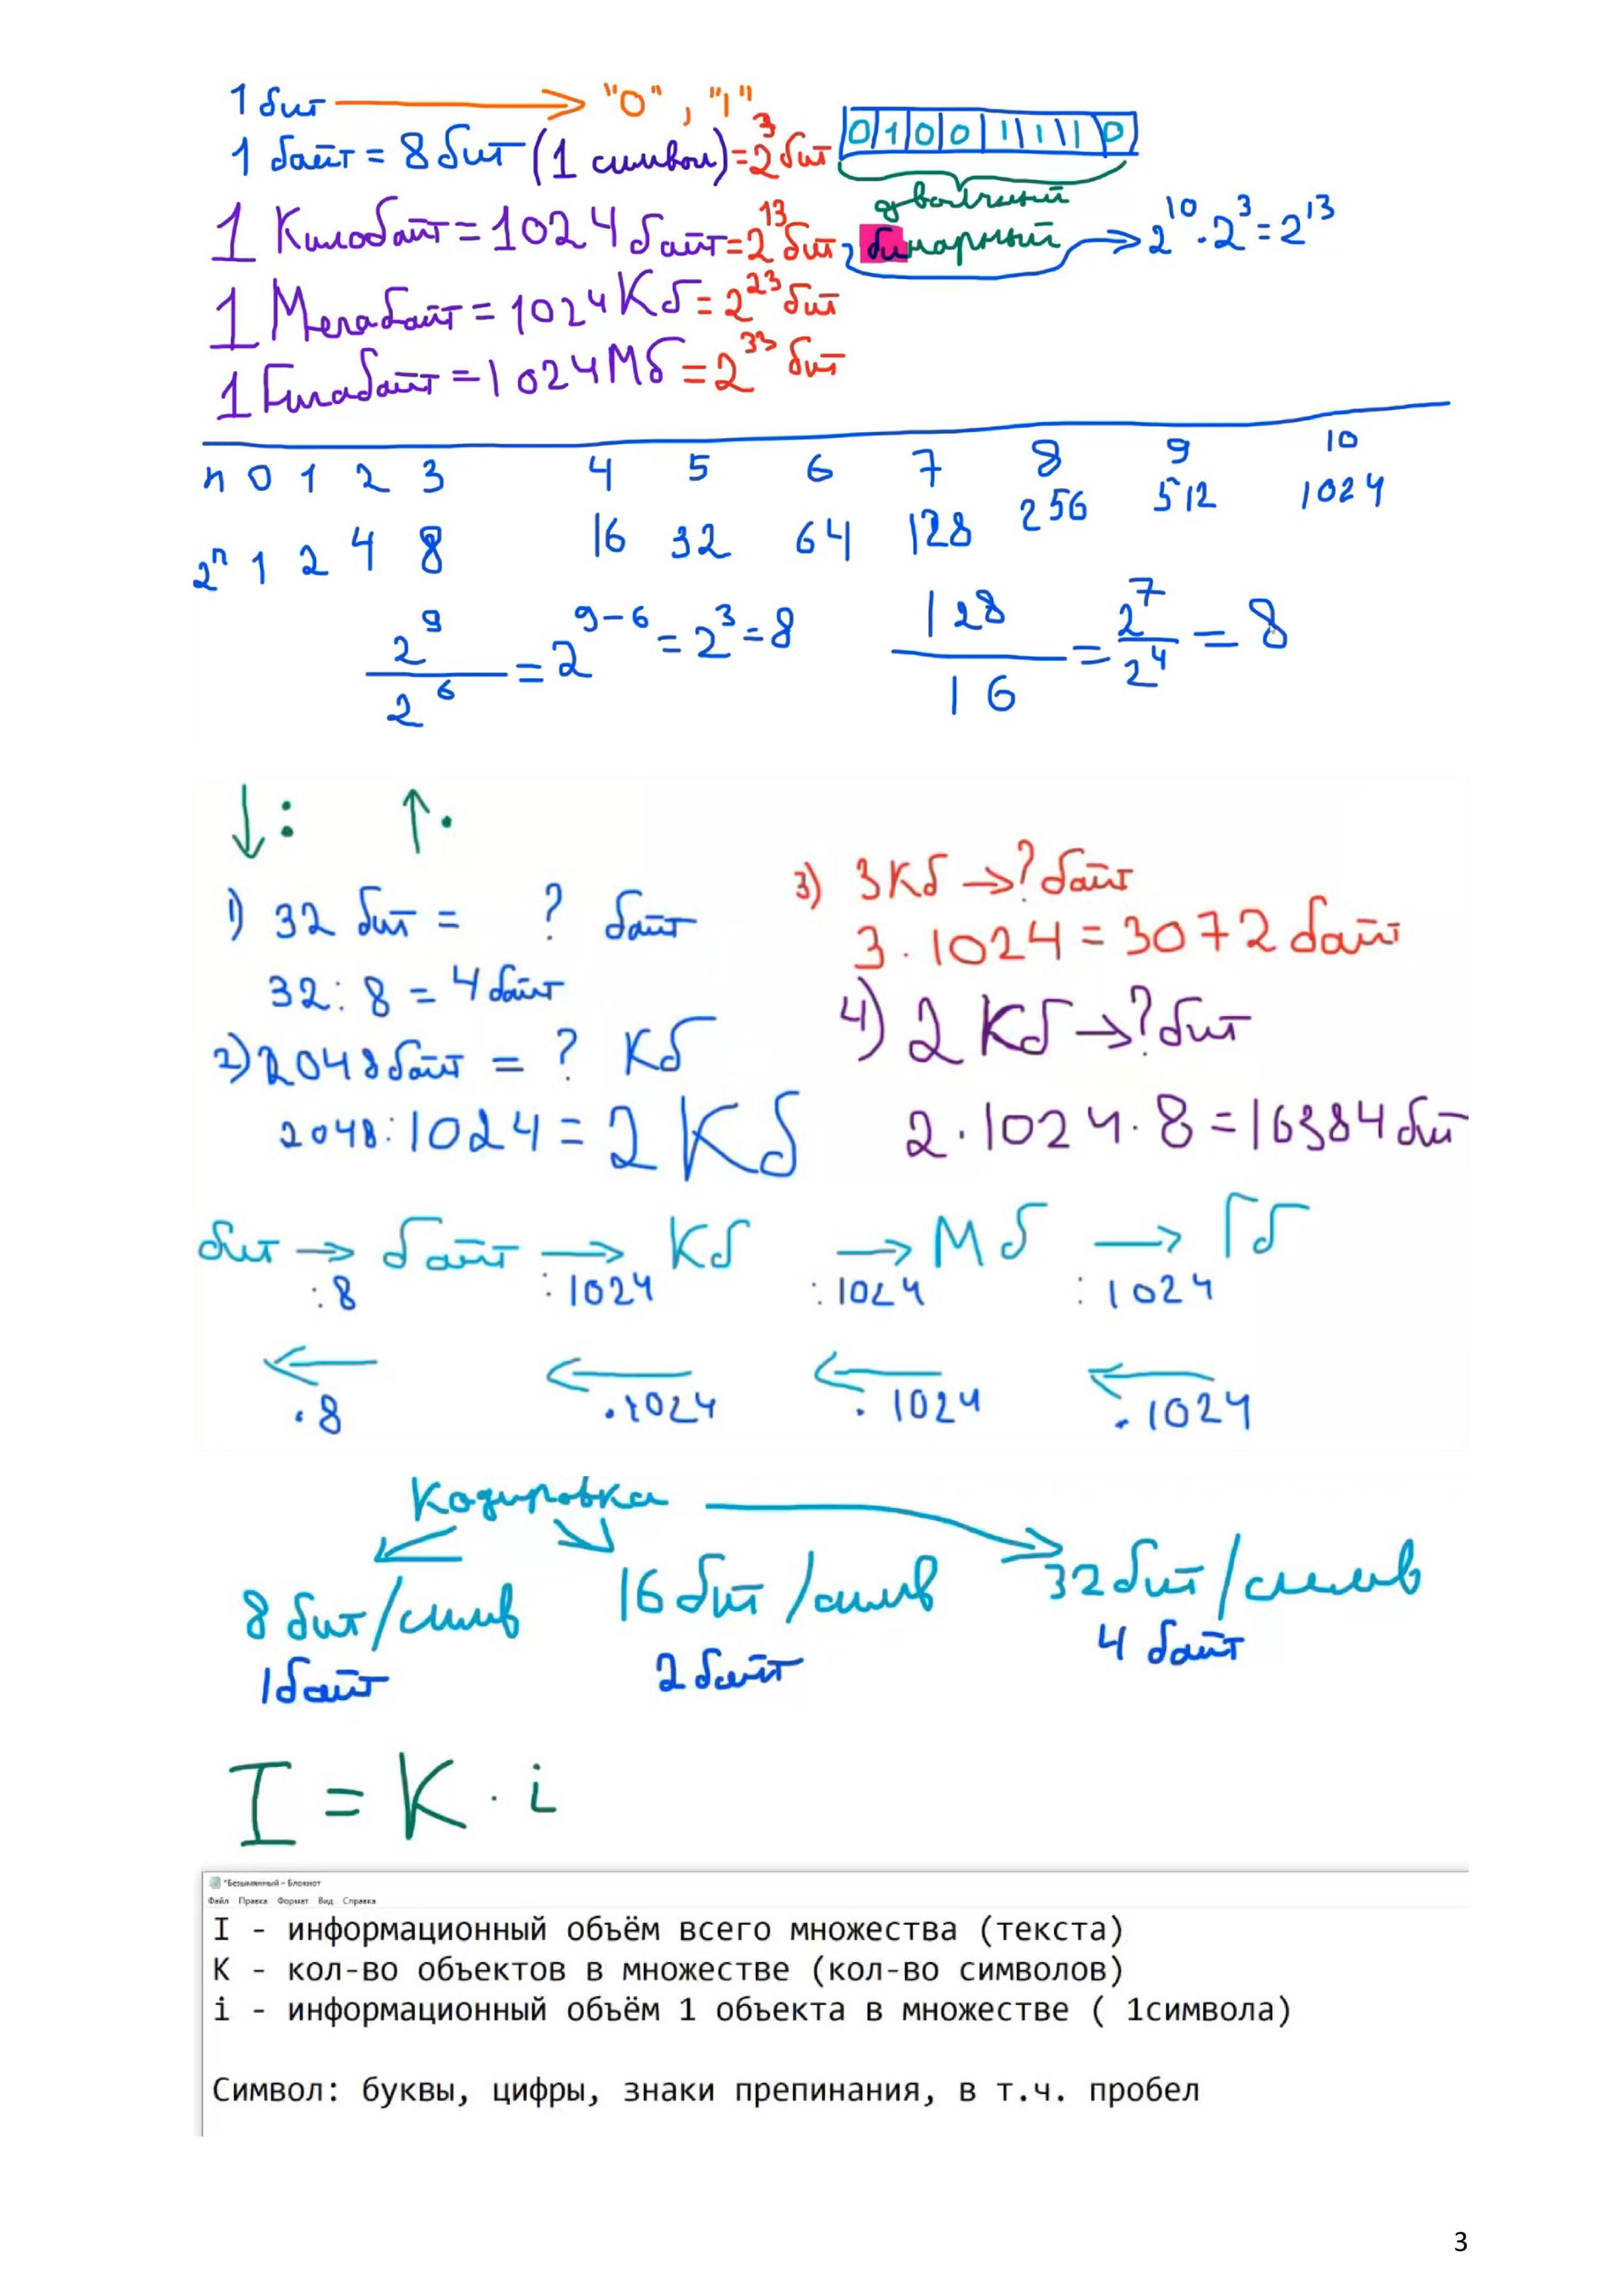 1 бит → "0", "1"
1 байт = 8 бит (1 символ) = 2³ бит 0 1 0 0 1 1 1 0
двоичный
1 Килобайт = 1024 байт = 2¹³ бит, бинарный → 2¹⁰ · 2³ = 2¹³
1 Мегабайт = 1024 Кб = 2²³ бит
1 Гигабайт = 1024 Мб = 2³³ бит
n 0 1 2 3 4 5 6 7 8 9 10
2ⁿ 1 2 4 8 16 32 64 128 256 512 1024
2⁹/2⁶ = 2⁹⁻⁶ = 2³ = 8 128/16 = 2⁷/2⁴ = 8
↓ : ↑ ·
1) 32 бит = ? байт
32 : 8 = 4 байт
2) 2048 байт = ? Кб
2048 : 1024 = 2 Кб
3) 3 Кб → ? байт
3 · 1024 = 3072 байт
4) 2 Кб → ? бит
2 · 1024 · 8 = 16384 бит
бит → байт → Кб → Мб → Гб
: 8 : 1024 : 1024 : 1024
← ← ← ←
· 8 · 1024 · 1024 · 1024
Кодировка
8 бит/симв 16 бит/симв 32 бит/симв
1 байт 2 байт 4 байт
I = K · i
*Безымянный – Блокнот
Файл Правка Формат Вид Справка
I - информационный объём всего множества (текста)
К - кол-во объектов в множестве (кол-во символов)
i - информационный объём 1 объекта в множестве ( 1символа)
Символ: буквы, цифры, знаки препинания, в т.ч. пробел
3